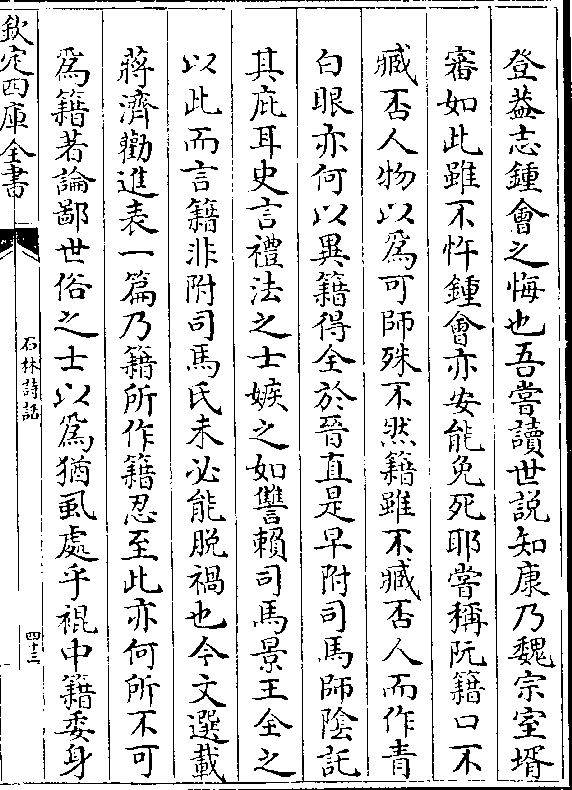 登葢志鍾會之悔也吾嘗讀世説知康乃魏宗室壻
審如此雖不忤鍾會亦安能免死耶嘗稱阮籍口不
臧否人物以為可師殊不然籍雖不臧否人而作青
白眼亦何以異籍得全於晉直是早附司馬師陰託
其庇耳史言禮法之士嫉之如讐賴司馬景王全之
以此而言籍非附司馬氏未必能脫禍也今文選載
蔣濟勸進表一篇乃籍所作籍忍至此亦何所不可
為籍著論鄙世俗之士以為猶虱處乎裩中籍委身
欽定四庫全書
石林詩話
四十三